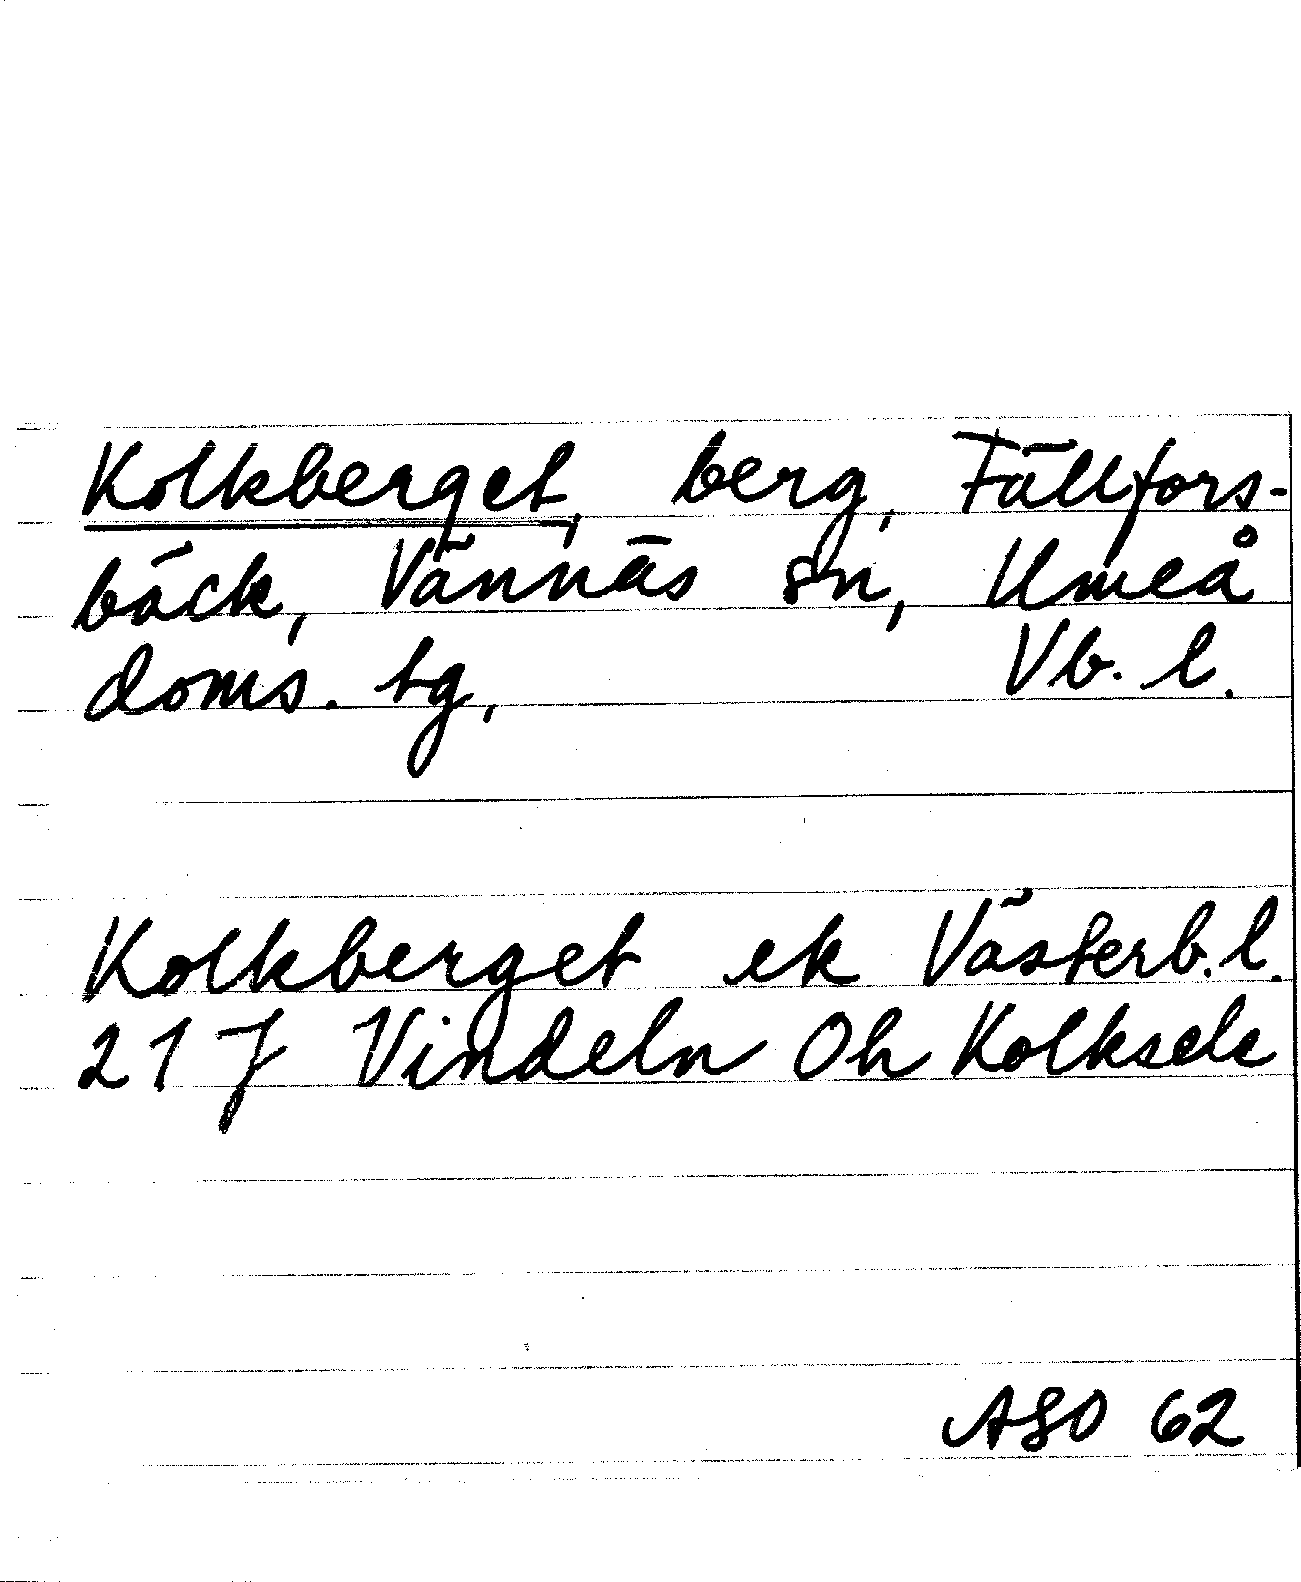 Kolkberget, berg, Fällfors-
bäck, Vännäs sn, Umeå
doms. tg, Vb. l.
Kolkberget ek Västerb. l.
21 J Vindeln Oh Kolksele
ASO 62